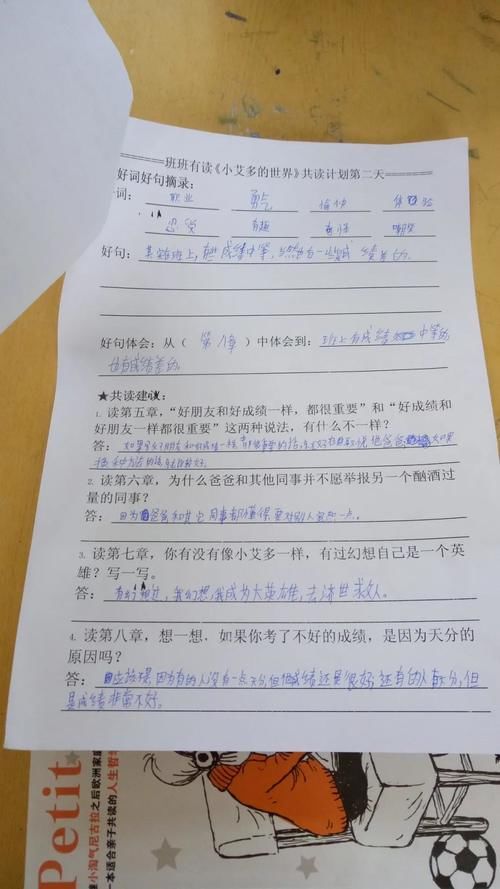 ======班班有读《小艾多的世界》共读计划第二天======
好词好句摘录：
词： 职业 勇气 愉快 体验
有趣
好句：其实在班上，我成绩中等，当然也有一些成绩差的。
好句体会：从（ 第八章 ）中体会到：班上有成绩中等的
也有成绩差的。
★共读建议：
1. 读第五章，“好朋友和好成绩一样，都很重要”和“好成绩和
好朋友一样都很重要”这两种说法，有什么不一样？
答：如果 好朋友和好成绩一样
种方法的话
2. 读第六章，为什么爸爸和其他同事并不愿举报另一个酗酒过
量的同事？
答：因为爸爸和其它同事都懂得要对别人宽容一点。
3. 读第七章，你有没有像小艾多一样，有过幻想自己是一个英
雄？写一写。
答：有幻想过，我幻想，我成为大英雄，去济世救人。
4. 读第八章，想一想，如果你考了不好的成绩，是因为天分的
原因吗？
答：应该不是，因为有的人没有一点天分，但但成绩还是很好，还有的人有天分，但
是成绩非常不好。
Petit
小淘气尼古拉之后欧洲家庭
一本适合亲子共读的人生哲